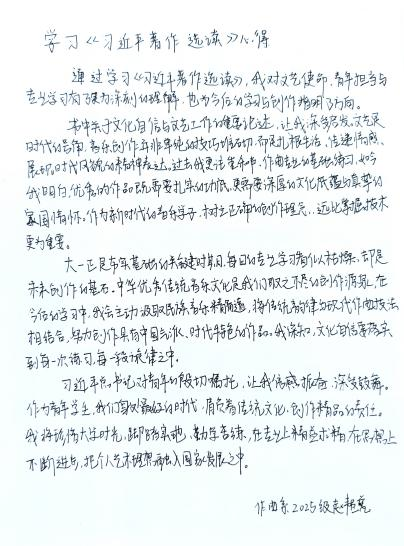 学习《习近平著作选读》心得
通过学习《习近平著作选读》，我对文艺使命、青年担当与
专业学习有了更为深刻的理解，也为今后的学习与创作指明了方向。
书中关于文化自信与文艺工作的重要论述，让我深受启发。文艺是
时代的号角，音乐创作并非单纯的技巧的组合，而是扎根生活、传递情感、
展现时代风貌的精神表达。过去我更注重和声、作曲专业的基础练习，如今
我明白，优秀的作品既需要扎实的功底，更需要深厚的文化底蕴与真挚的
家国情怀。作为新时代的音乐学子，树立正确的创作理念，远比掌握技术
更为重要。
大一正是夯实基础的关键时期，每日的专业学习看似枯燥，却是
未来创作的基石。中华优秀传统音乐文化是我们取之不尽的创作源泉，在
今后的学习中，我会主动汲取民族音乐精髓，将传统韵律与现代作曲技法
相结合，努力创作具有中国气派、时代特色的作品。我深知，文化自信要落实
到每一次练习、每一段旋律之中。
习近平总书记对青年的殷切嘱托，让我倍感振奋、深受鼓舞。
作为青年学生，我们身处最好的时代，肩负着传统文化、创作精品的责任。
我将珍惜大学时光，脚踏实地、勤学苦练，在专业上精益求精，在思想上
不断进步，把个人艺术理想融入国家发展之中。
作曲系2025级